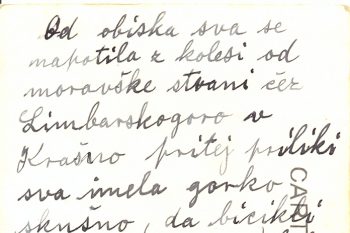 Od obiska sva se
napotila z kolesi od
moravške strani čez
Limbarskogoro v
Krašno pritej priliki
sva imela gorko
skušno, da bicikli
CART